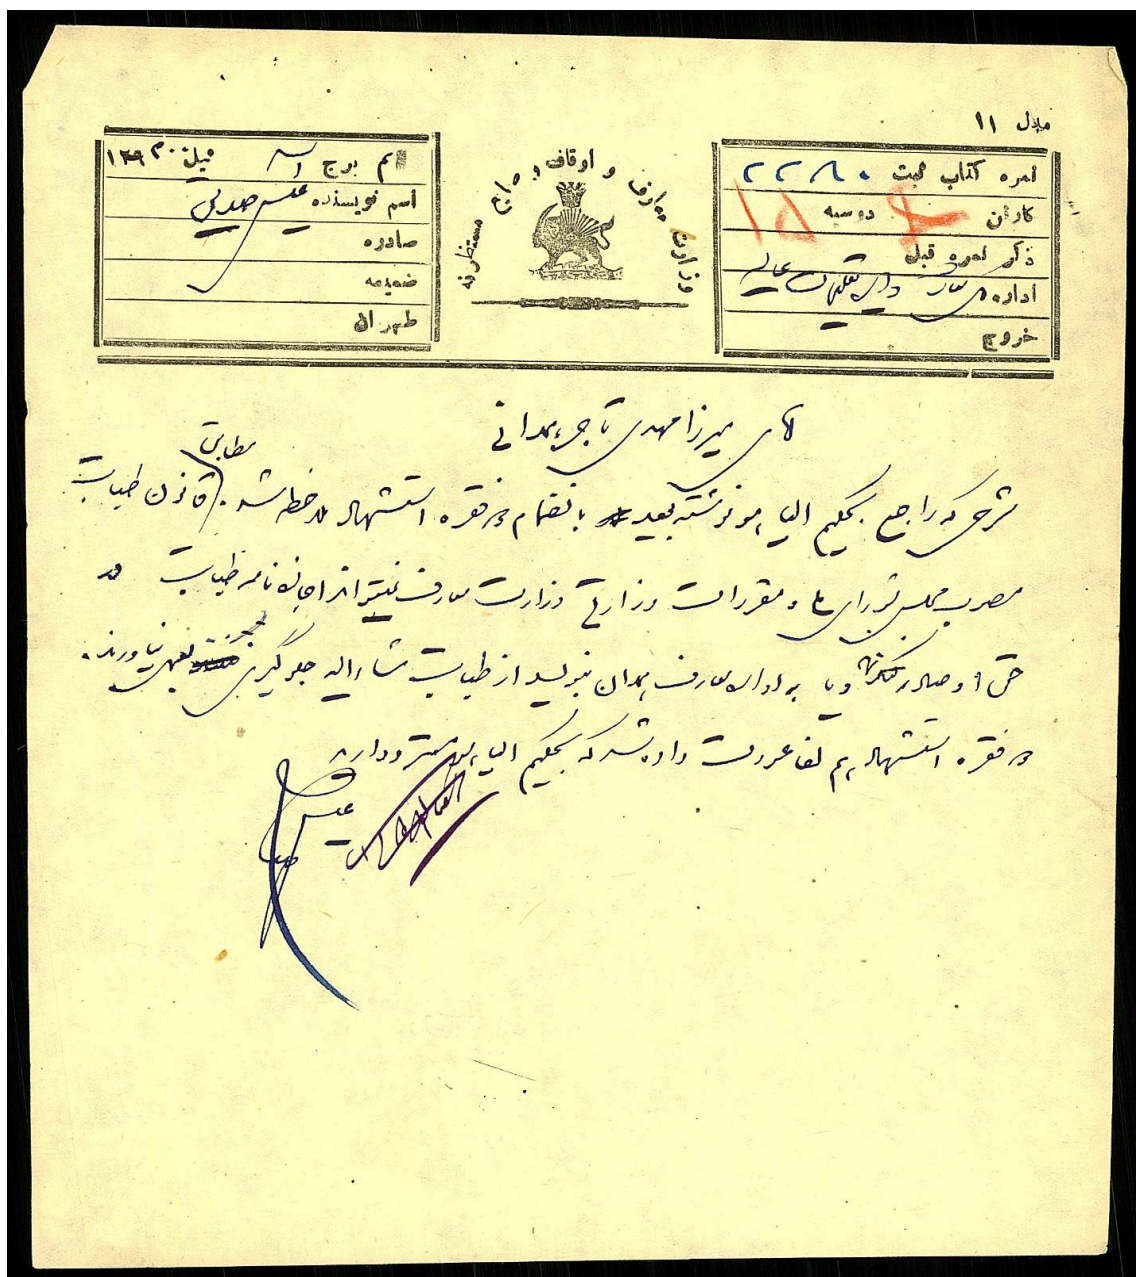 مدل ۱۱
نمره کتاب ثبت ۲۲۸۰
کارتن دوسیه ۱۵
ذکر نمره قبل
اداره تعلیمات عالیه
خروج
وزارت معارف و اوقاف و صنایع مستظرفه
بم برج ئیل ۱۲۹
اسم نویسنده عیسی صدیق
صادره
ضمیمه
طهران
آقای میرزا مهدی تاجر همدانی
شرحی که راجع بحکیم الیاهو نوشته بودید بانضمام دو فقره استشهاد ملاحظه شد. مطابق قانون طبابت
مصوب مجلس شورای ملی و مقررات وزارتی وزارت معارف نمیتواند اجازه نامه طبابت در
حق او صادر کند و یا به اداره معارف همدان بنویسد از طبابت مشارالیه جلوگیری بعمل نیاورند.
دو فقره استشهاد هم لفا عودت داده شد که بحکیم الیاهو مسترد دارید
عیسی